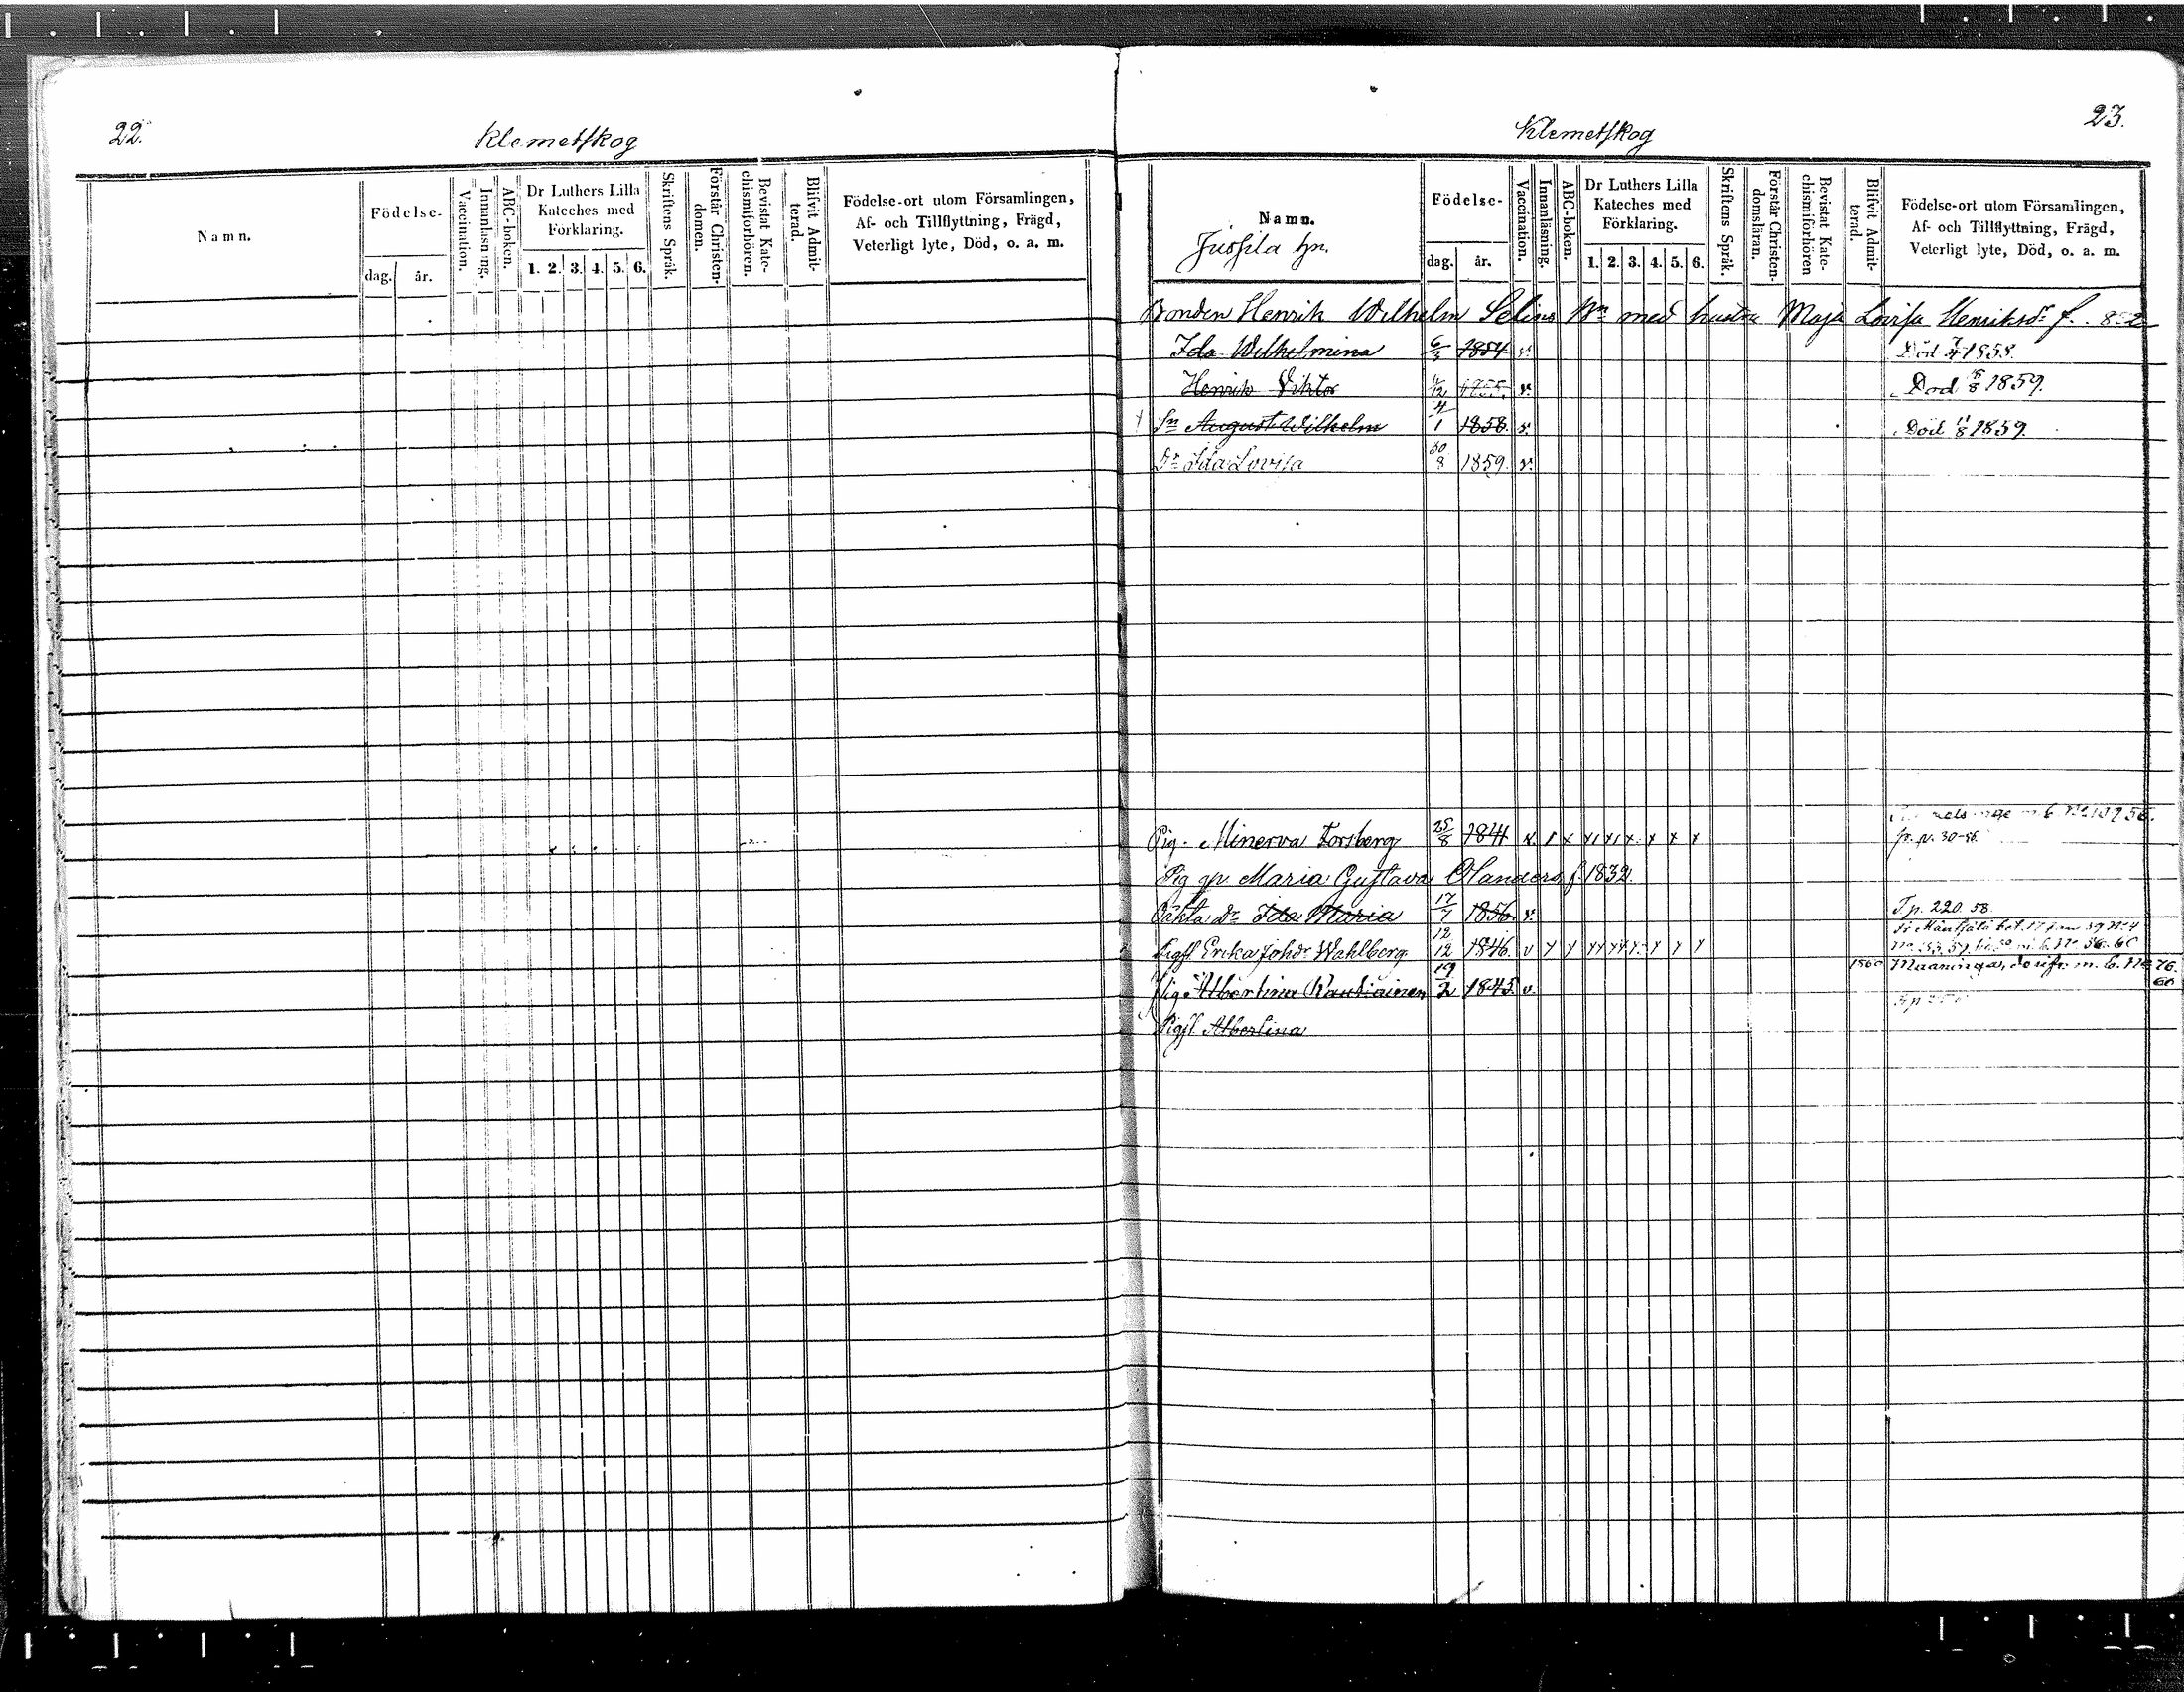 22.
Klemetskog
Namn.
Födelse-
dag.
år.
Vaccination.
Innanläsning.
ABC-boken.
Dr Luthers Lilla
Kateches med
Förklaring.
1. 2. 3. 4. 5. 6.
Skriftens Språk.
Förstår Christen-
domen.
Bevistat Kate-
chismiförhören.
Blifvit Admit-
terad.
Födelse-ort utom Församlingen,
Af- och Tillflyttning, Frägd,
Veterligt lyte, Död, o. a. m.
23.
Klemetskog
Namn.
Jussila
Födelse-
dag.
år.
Vaccination.
Innanläsning.
ABC-boken.
Dr Luthers Lilla
Kateches med
Förklaring.
1. 2. 3. 4. 5. 6.
Skriftens Språk.
Förstår Christen-
domsläran.
Bevistat Kate-
chismiförhören
Blifvit Admit-
terad.
Födelse-ort utom Församlingen,
Af- och Tillflyttning, Frägd,
Veterligt lyte, Död, o. a. m.
Bonden Henrik Wilhelm med hustru Maja Lovisa Henriksdr f.
Ida Wilhelmina 6/3 1854 v. Död 1858.
Henrik Viktor 1855. v. Död 1859.
Sn August Wilhelm 4/1 1858. v. Död 1859.
Dr Ida Lovisa 30/8 1859. v.
Pig. Minerva Forsberg 25/8 1841 v.
Pig. Maria Gustava Olanders f. 1832.
Oäkta dr Ida Maria 1856 v. T. p. 220. 58.
Pigfl. Erika Johdr Wahlberg. 12/12 1846. v
Pig. Albertina Rautiainen 19/2 1845. v. 1860 Maaninga, m. b. No 76.
60
Pigfl. Albertina